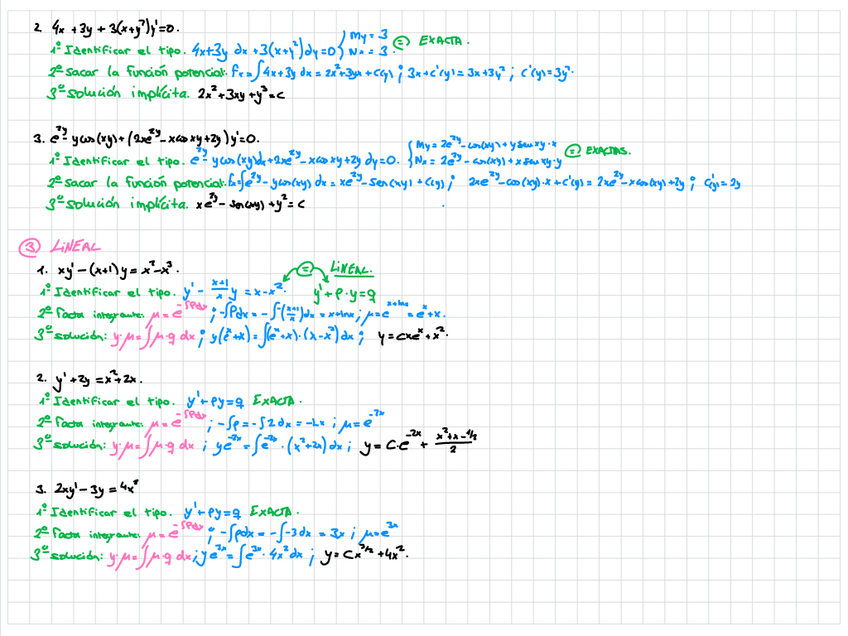 2. 4x + 3y + 3(x+y²)y'=0.
1º Identificar el tipo. 4x+3y dx + 3(x+y²)dy=0 } My = 3 Nx = 3 (=) EXACTA.
2º Sacar la función potencial. fx=∫4x+3y dx = 2x²+3yx + c(y) ; 3x+c'(y)=3x+3y² ; c'(y)=3y².
3º Solución implícita. 2x²+3xy+y³=c
3. e^2y - y cos(xy) + (2xe^2y - x cos xy + 2y) y'=0.
1º Identificar el tipo. e^2y - y cos(xy)dx + 2xe^2y - x cos xy + 2y dy=0. { My = 2e^2y - cos(xy) + y sen xy·x Nx = 2e^2y - cos(xy) + x sen xy·y (=) EXACTAS.
2º Sacar la función potencial. fx=∫e^2y - y cos(xy) dx = xe^2y - sen(xy) + c(y) ; 2xe^2y - cos(xy)·x + c'(y) = 2xe^2y - x cos(xy) + 2y ; c'(y) = 2y
3º Solución implícita. xe^2y - sen(xy) + y² = c
③ LINEAL
1. xy' - (x+1)y = x² - x³.
1º Identificar el tipo. y' - (x+1)/x y = x - x². (=) LINEAL. y' + p·y = q
2º Factor integrante: μ = e^-∫pdx ; -∫pdx = -∫-(x+1/x)dx = x+lnx ; μ=e^x+lnx = e^x + x.
3º Solución: y·μ = ∫μ·q dx ; y(e^x+x) = ∫(e^x+x)·(x-x²)dx ; y = cxe^x + x².
2. y' + 2y = x² + 2x.
1º Identificar el tipo. y' + py = q EXACTA.
2º Factor integrante: μ = e^-∫pdx ; -∫p = -∫2dx = -2x ; μ = e^-2x
3º Solución: y·μ = ∫μ·q dx ; ye^-2x = ∫e^-2x · (x²+2x)dx ; y = C·e^-2x + (x²+x-1/2)/2
3. 2xy' - 3y = 4x²
1º Identificar el tipo. y' + py = q EXACTA.
2º Factor integrante: μ = e^-∫pdx ; -∫pdx = -∫-3dx = 3x ; μ=e^3x
3º Solución: y·μ = ∫μ·q dx ; ye^3x = ∫e^3x · 4x² dx ; y = Cx^3/2 + 4x².